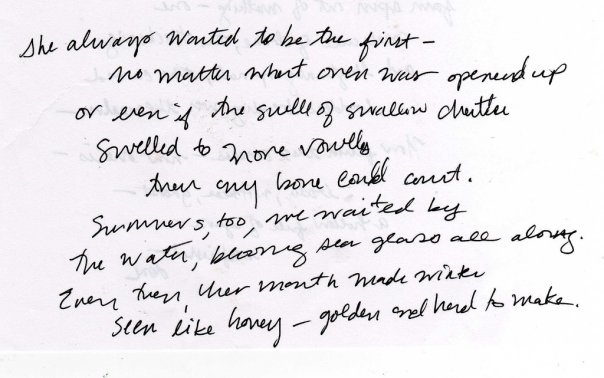 She always wanted to be the first –
no matter what oven was opened up
or even if the swell of swallow chatter
swelled to more vowels
than any bone could count.
Summers, too, we waited by
the water, blessing sea glass all along.
Even then, her mouth made winter
seem like honey – golden and hard to make.